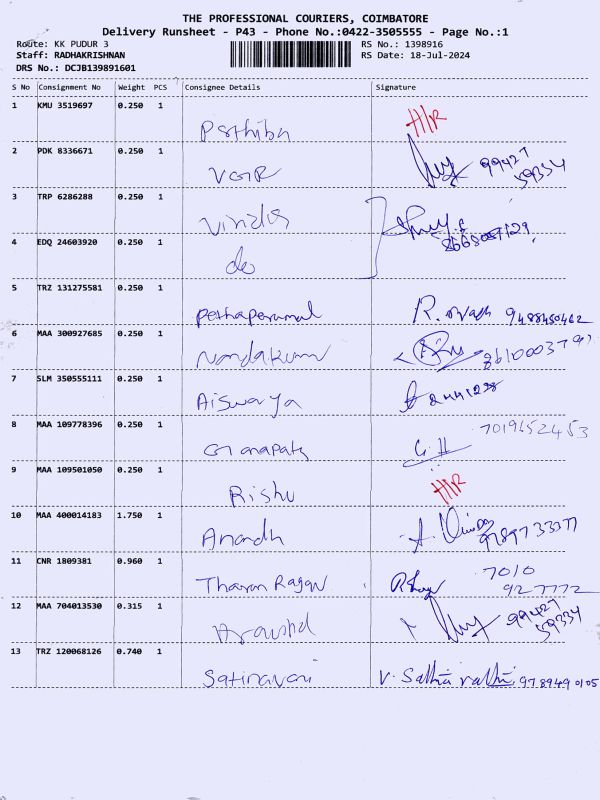 THE PROFESSIONAL COURIERS, COIMBATORE
Delivery Runsheet - P43 - Phone No.:0422-3505555 - Page No.:1
Route: KK PUDUR 3
RS No.: 1398916
Staff: RADHAKRISHNAN
RS Date: 18-Jul-2024
DRS No.: DCJB139891601
S No Consignment No Weight PCS Consignee Details Signature
1 KMU 3519697 0.250 1
Parthiba H/R
2 PDK 8336671 0.250 1
VGR 99427
59334
3 TRP 6286288 0.250 1
4 EDQ 24603920 0.250 1
do
5 TRZ 131275581 0.250 1
Pethaperumal R. 9488450462
6 MAA 300927685 0.250 1
Nandakumar
7 SLM 350555111 0.250 1
Aiswarya
8 MAA 109778396 0.250 1
Ganapathy G. H 7019652453
9 MAA 109501050 0.250 1
Rishu H/R
10 MAA 400014183 1.750 1
Anandh 9789733377
11 CNR 1809381 0.960 1
Tharan Ragav 7010
927772
12 MAA 704013530 0.315 1
Aravind 99427
59334
13 TRZ 120068126 0.740 1
V. 978949 0105